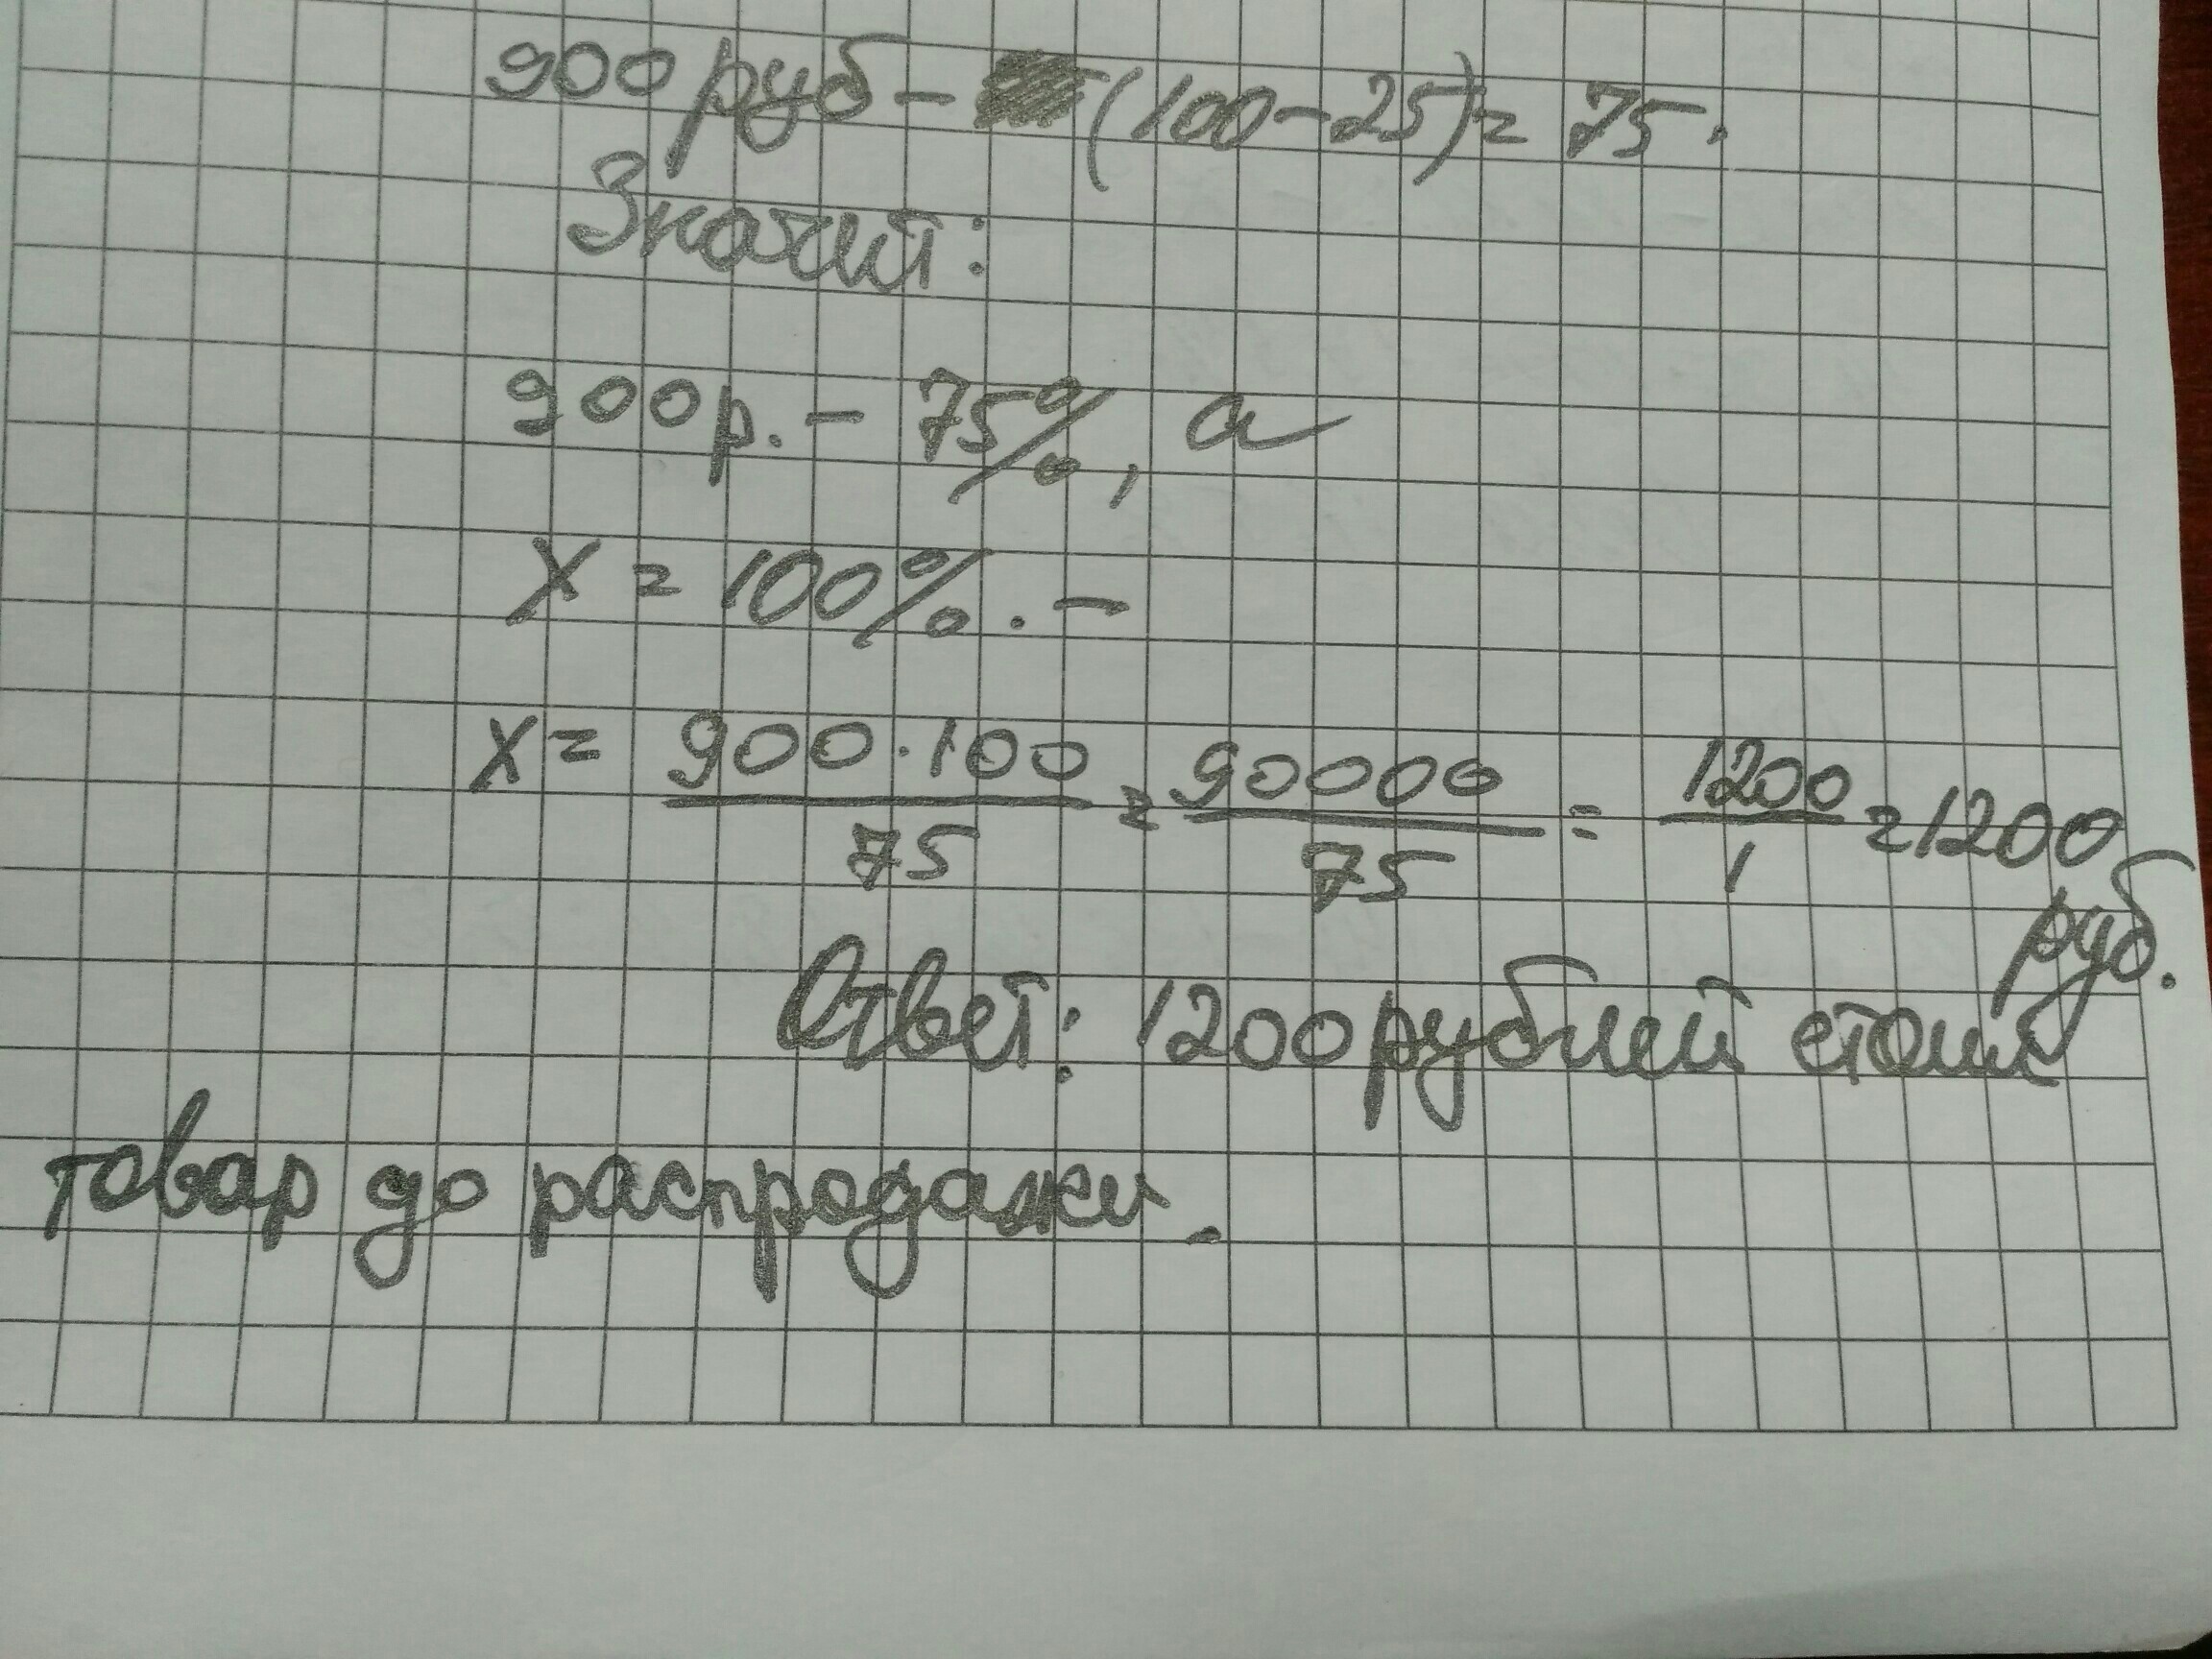 900 руб - (100-25)= 75.
Значит:
900р. - 75%, а
X = 100%. -
X = 900·100/75 = 90000/75 = 1200/1 = 1200
руб.
Ответ: 1200 рублей стоит
товар до распродажи.